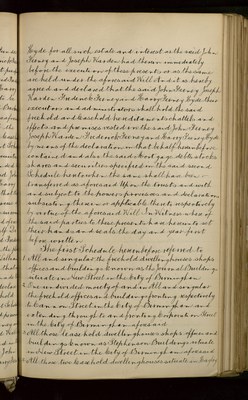 Hyde for all such estate and interest as the said John
Feeney and Joseph Harden had therein immediately
before the execution of these presents or as the same
are held under the aforesaid Will And it is hereby
agreed and declared that the said John Feeney Joseph
Harden Frederick Feeney and Hyde their
executors and administrators shall hold the said
freehold and leasehold hereditaments chattels and
effects and premises vested in the said John Feeney
Joseph Harden Frederick Feeney and Hyde
by means of the declaration in that behalf hereinbefore
contained and also the said mortgage debts stocks
shares and securities specified in the said second
Schedule hereto when the same shall have been
transferred as aforesaid Upon the trusts and with
and subject to the powers provisions and declarations
subsisting therein or applicable thereto respectively
by virtue of the aforesaid Will In Witness whereof
the said parties to these presents have hereunto set
their hands and seals the day and year first
before written
The first Schedule hereinbefore referred to
1 All and singular the freehold dwellinghouses shops
offices and buildings known as the Journal Buildings
situate in New Street in the City of Birmingham
2 One undivided moiety of and in All and singular
the freehold offices and buildings fronting respectively
to Cannon Street in the City of Birmingham and
extending through to and fronting Needless Alley Street
in the City of Birmingham aforesaid
3 All those leasehold dwellinghouses shops offices and
buildings known as Stephenson Buildings situate
in New Street in the City of Birmingham aforesaid
4 All those two leasehold dwellinghouses situate in